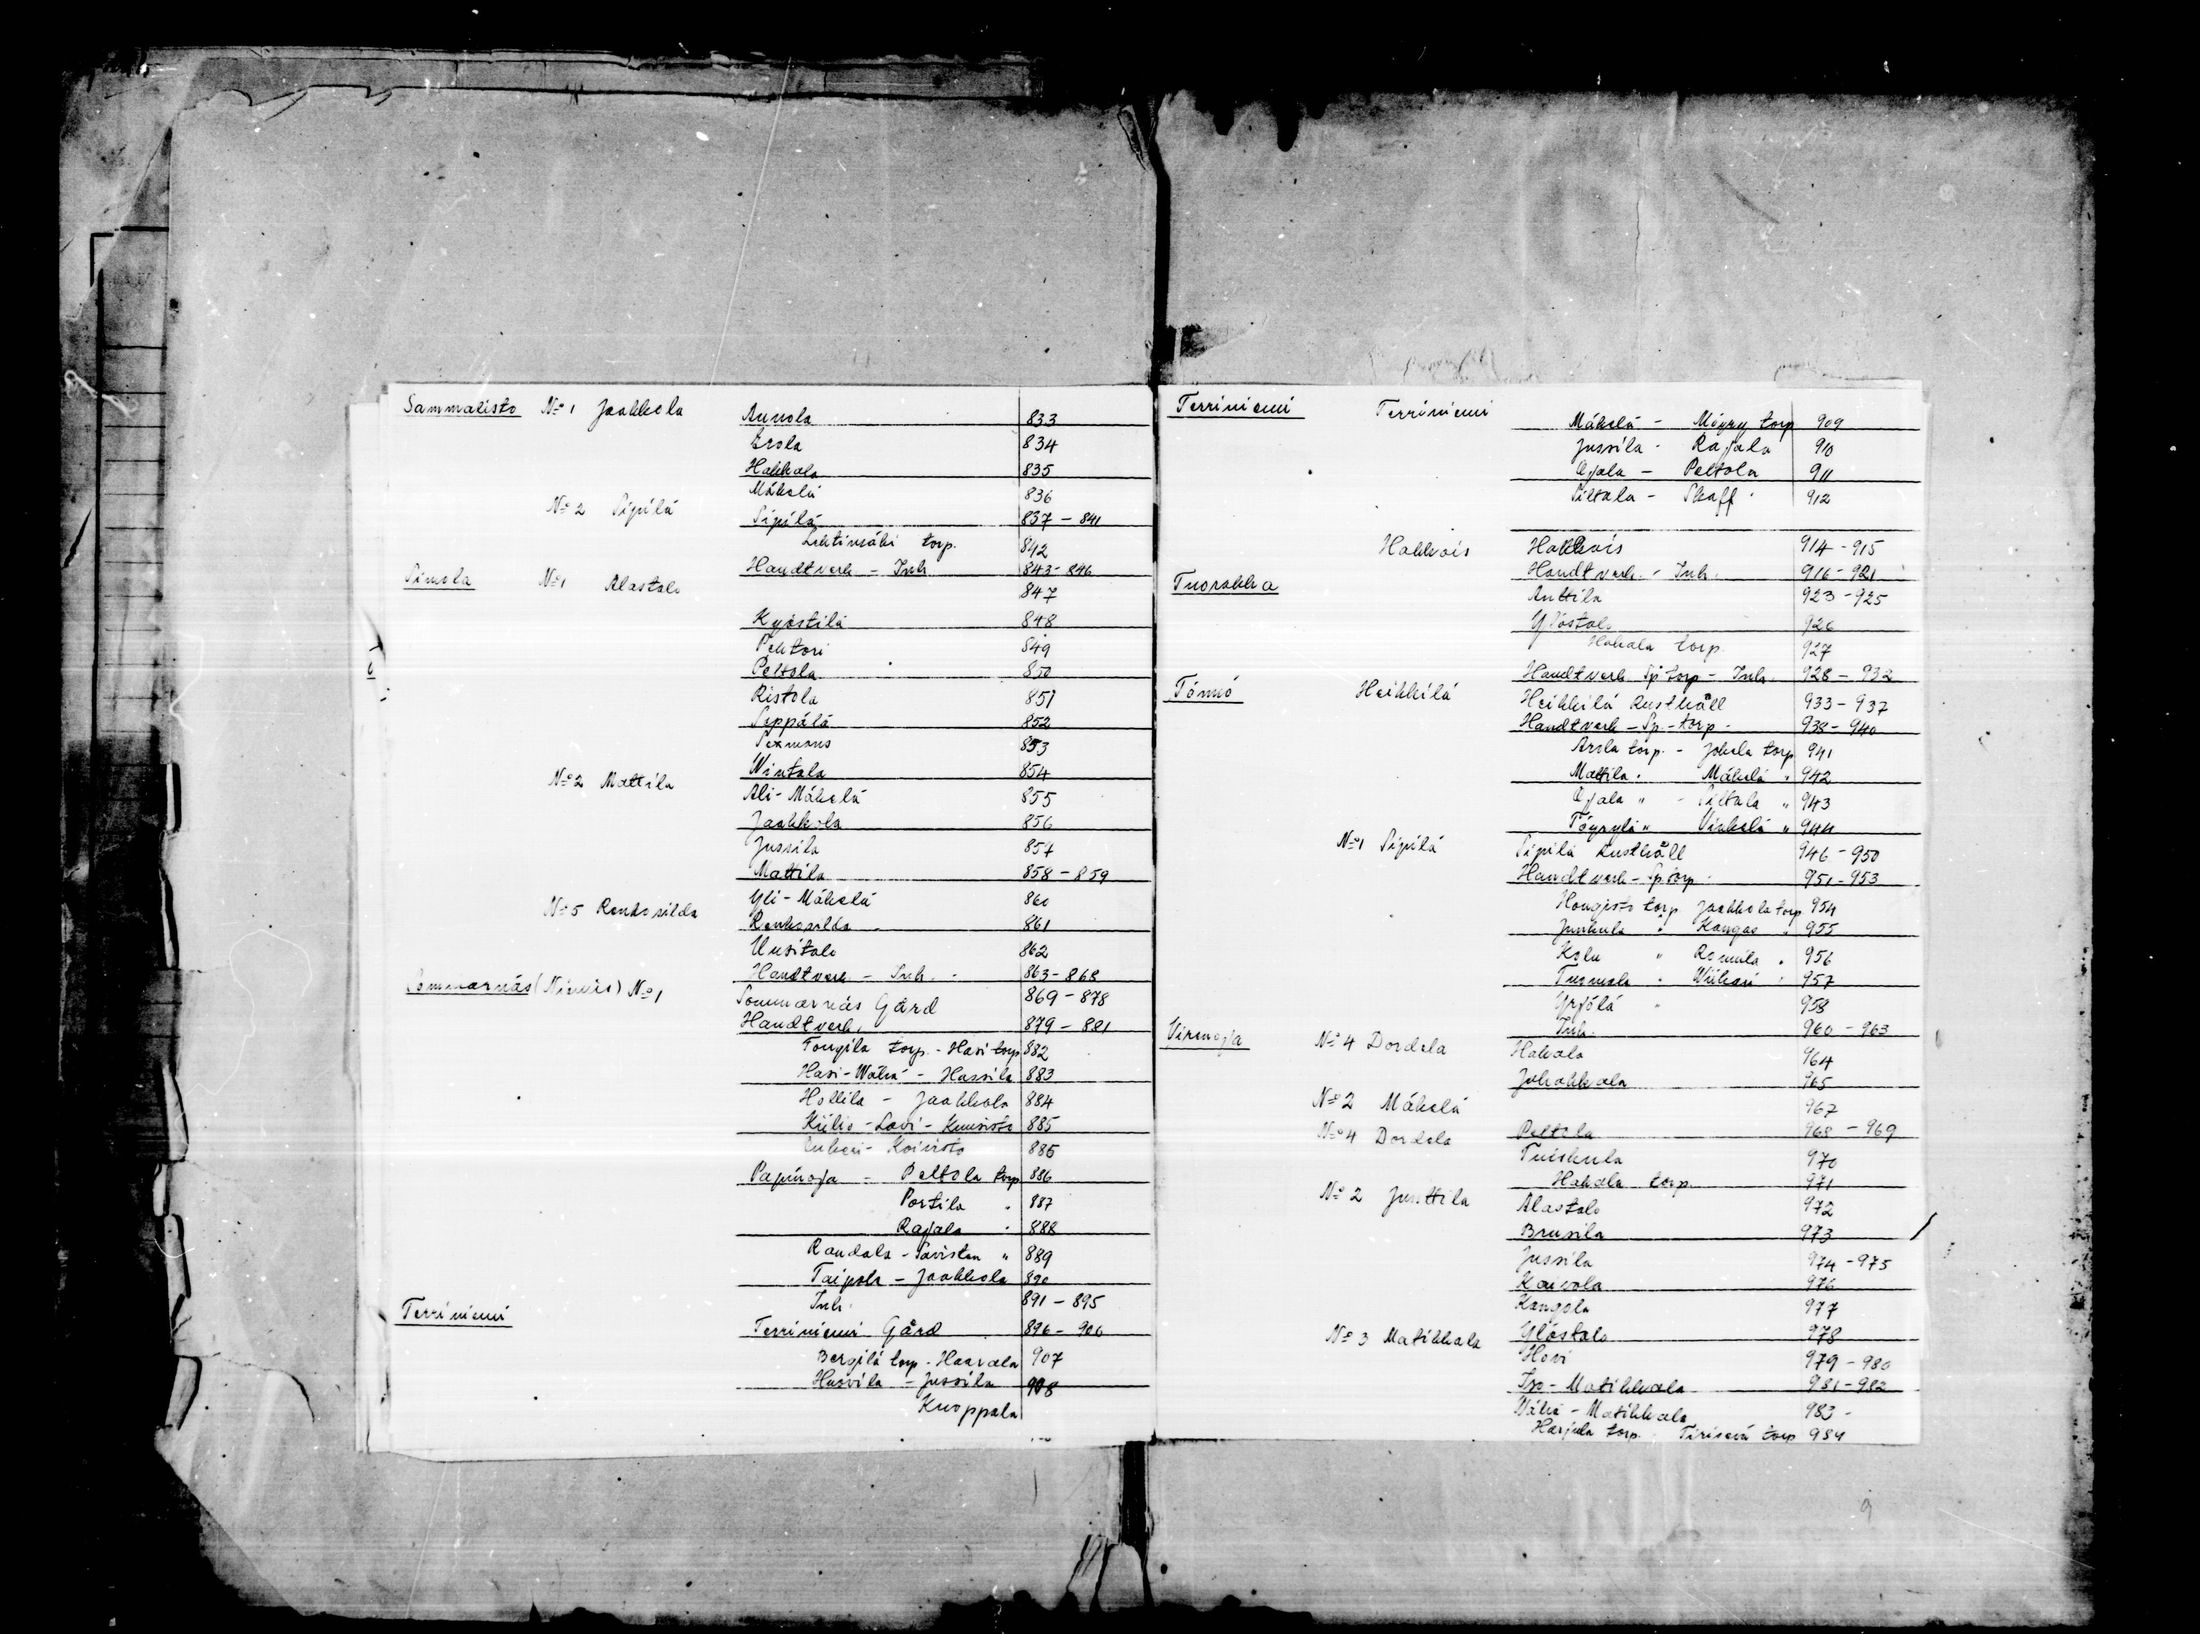 Sammalisto No 1 Jaakkola Annola 833
Erola 834
Hakkala 835
Mäkelä 836
No 2 Sipilä Sipilä 837 - 841
Lehtimäki torp. 842
Handtverk. - Inh. 843 - 846
Simola No 1 Alastalo 847
Kyöstilä 848
Pehtori 849
Peltola 850
Ristola 851
Seppälä 852
Texmons 853
Wintala 854
No 2 Mattila Ali-Mäkelä 855
Jaakkola 856
Jussila 857
Mattila 858 - 859
Yli-Mäkelä 860
No 5 Renkosilda Renkosilda 861
Uusitalo 862
Handtverk. - Inh. 863 - 868
Sommarnäs (Niinis) No 1 Sommarnäs Gård 869 - 878
Handtverk. 879 - 881
Tongila torp. - Hasi torp 882
Hasi-Wähä - Hassila 883
Hollila - Jaakkola 884
Kiilio - Lavi - Kuusisto 885
Koivisto 885
Papinoja - Peltola torp 886
Portila " 887
Rajala " 888
Randala - Savisten " 889
Taipale - Jaakkola 890
Inh. 891 - 895
Terriniemi Terriniemi Gård 896 - 906
Bergilä torp. - Haavala 907
Huovila - Jussila 908
Knoppala
Terriniemi Terriniemi Mäkelä - Möyry torp 909
Jussila - Rajala 910
Ojala - Peltola 911
Siltala - Skaff 912
Hakkois Hakkois 914 - 915
Handtverk. - Inh. 916 - 921
Tuorakka Anttila 923 - 925
Ylöstalo 926
Hakala torp. 927
Handtverk Sp torp - Inh. 928 - 932
Tömö Heikkilä Heikkilä Rusthåll 933 - 937
Handtverk - Sp - torp. 938 - 940
Arola torp. - Jokela torp 941
Mattila . Mäkelä " 942
Ojala " - Siltala " 943
Töyrylä " Vinkelä " 944
No 1 Sipilä Sipilä Rusthåll 946 - 950
Handtverk - Sp torp. 951 - 953
Hongisto torp. Jaakkola torp. 954
Junkula " Kangas " 955
Kolu " Romula " 956
Tuomola " Wiikari " 957
Yrjölä " 958
Inh. 960 - 963
Virenoja No 4 Dordela Hakala 964
Juhakkala 965
No 2 Mäkelä 967
No 4 Dordela Peltola 968 - 969
Tuiskula 970
Hakala torp. 971
No 2 Junttila Alastalo 972
Brusila 973
Jussila 974 - 975
Kauvola 976
Kangola 977
No 3 Matikkala Ylöstalo 978
Hovi 979 - 980
Iso-Matikkala 981 - 982
Wähä-Matikkala 983 -
Harjula torp. Tirisevä torp 984
9